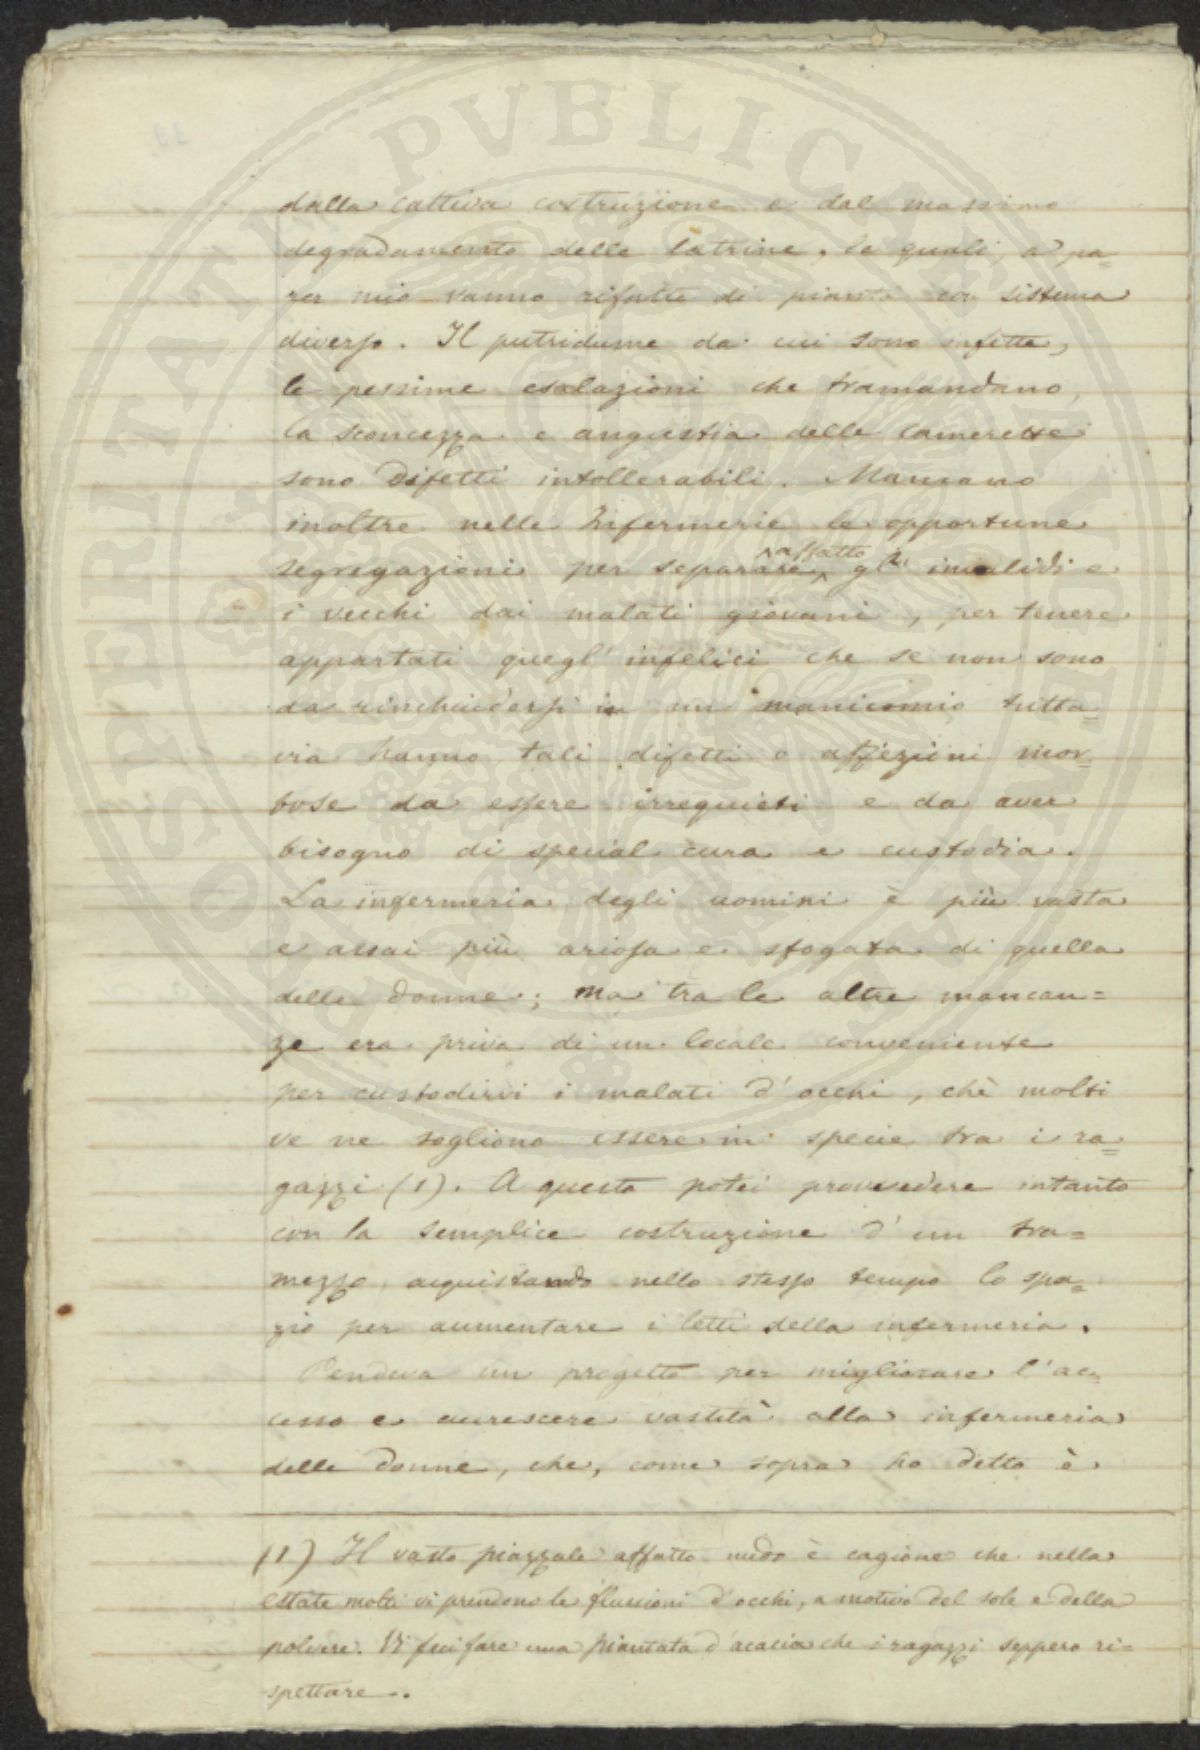 dalla cattiva costruzione e dal massimo
degradamento delle latrine, le quali, a pa=
rer mio vanno rifatte di pianta con sistema
diverso. Il putridume da cui sono infette,
le pessime esalazioni che tramandano,
la sconcezza e angustia delle camerette
sono difetti intollerabili. Mancano
inoltre nelle Infermerie le opportune
segregazioni per separare affatto gl'invalidi e
i vecchi dai malati giovani, per tenere
appartati quegl'infelici che se non sono
da rinchiudersi in un manicomio tutta=
via hanno tali difetti o affezioni mor=
bose da essere irrequieti e da aver
bisogno di special cura e custodia.
La infermeria degli uomini è più vasta
e assai più ariosa e sfogata di quella
delle donne; ma tra le altre mancan=
ze era priva di un locale conveniente
per custodirvi i malati d'occhi, chè molti
ve ne sogliono essere in specie tra i ra=
gazzi (1). A questo potei provvedere intanto
con la semplice costruzione d'un tra=
mezzo acquistando nello stesso tempo lo spa=
zio per aumentare i letti della infermeria.
Pendeva un progetto per migliorare l'ac=
cesso e accrescere vastità alla infermeria
delle donne, che, come sopra ho detto è
(1) Il vasto piazzale affatto nudo è cagione che nella
estate molti vi prendono le flussioni d'occhi, a motivo del sole e della
polvere. Vi feci fare una piantata d'acacia che i ragazzi seppero ri=
spettare.
PUBLICAE
PROSPERITATI